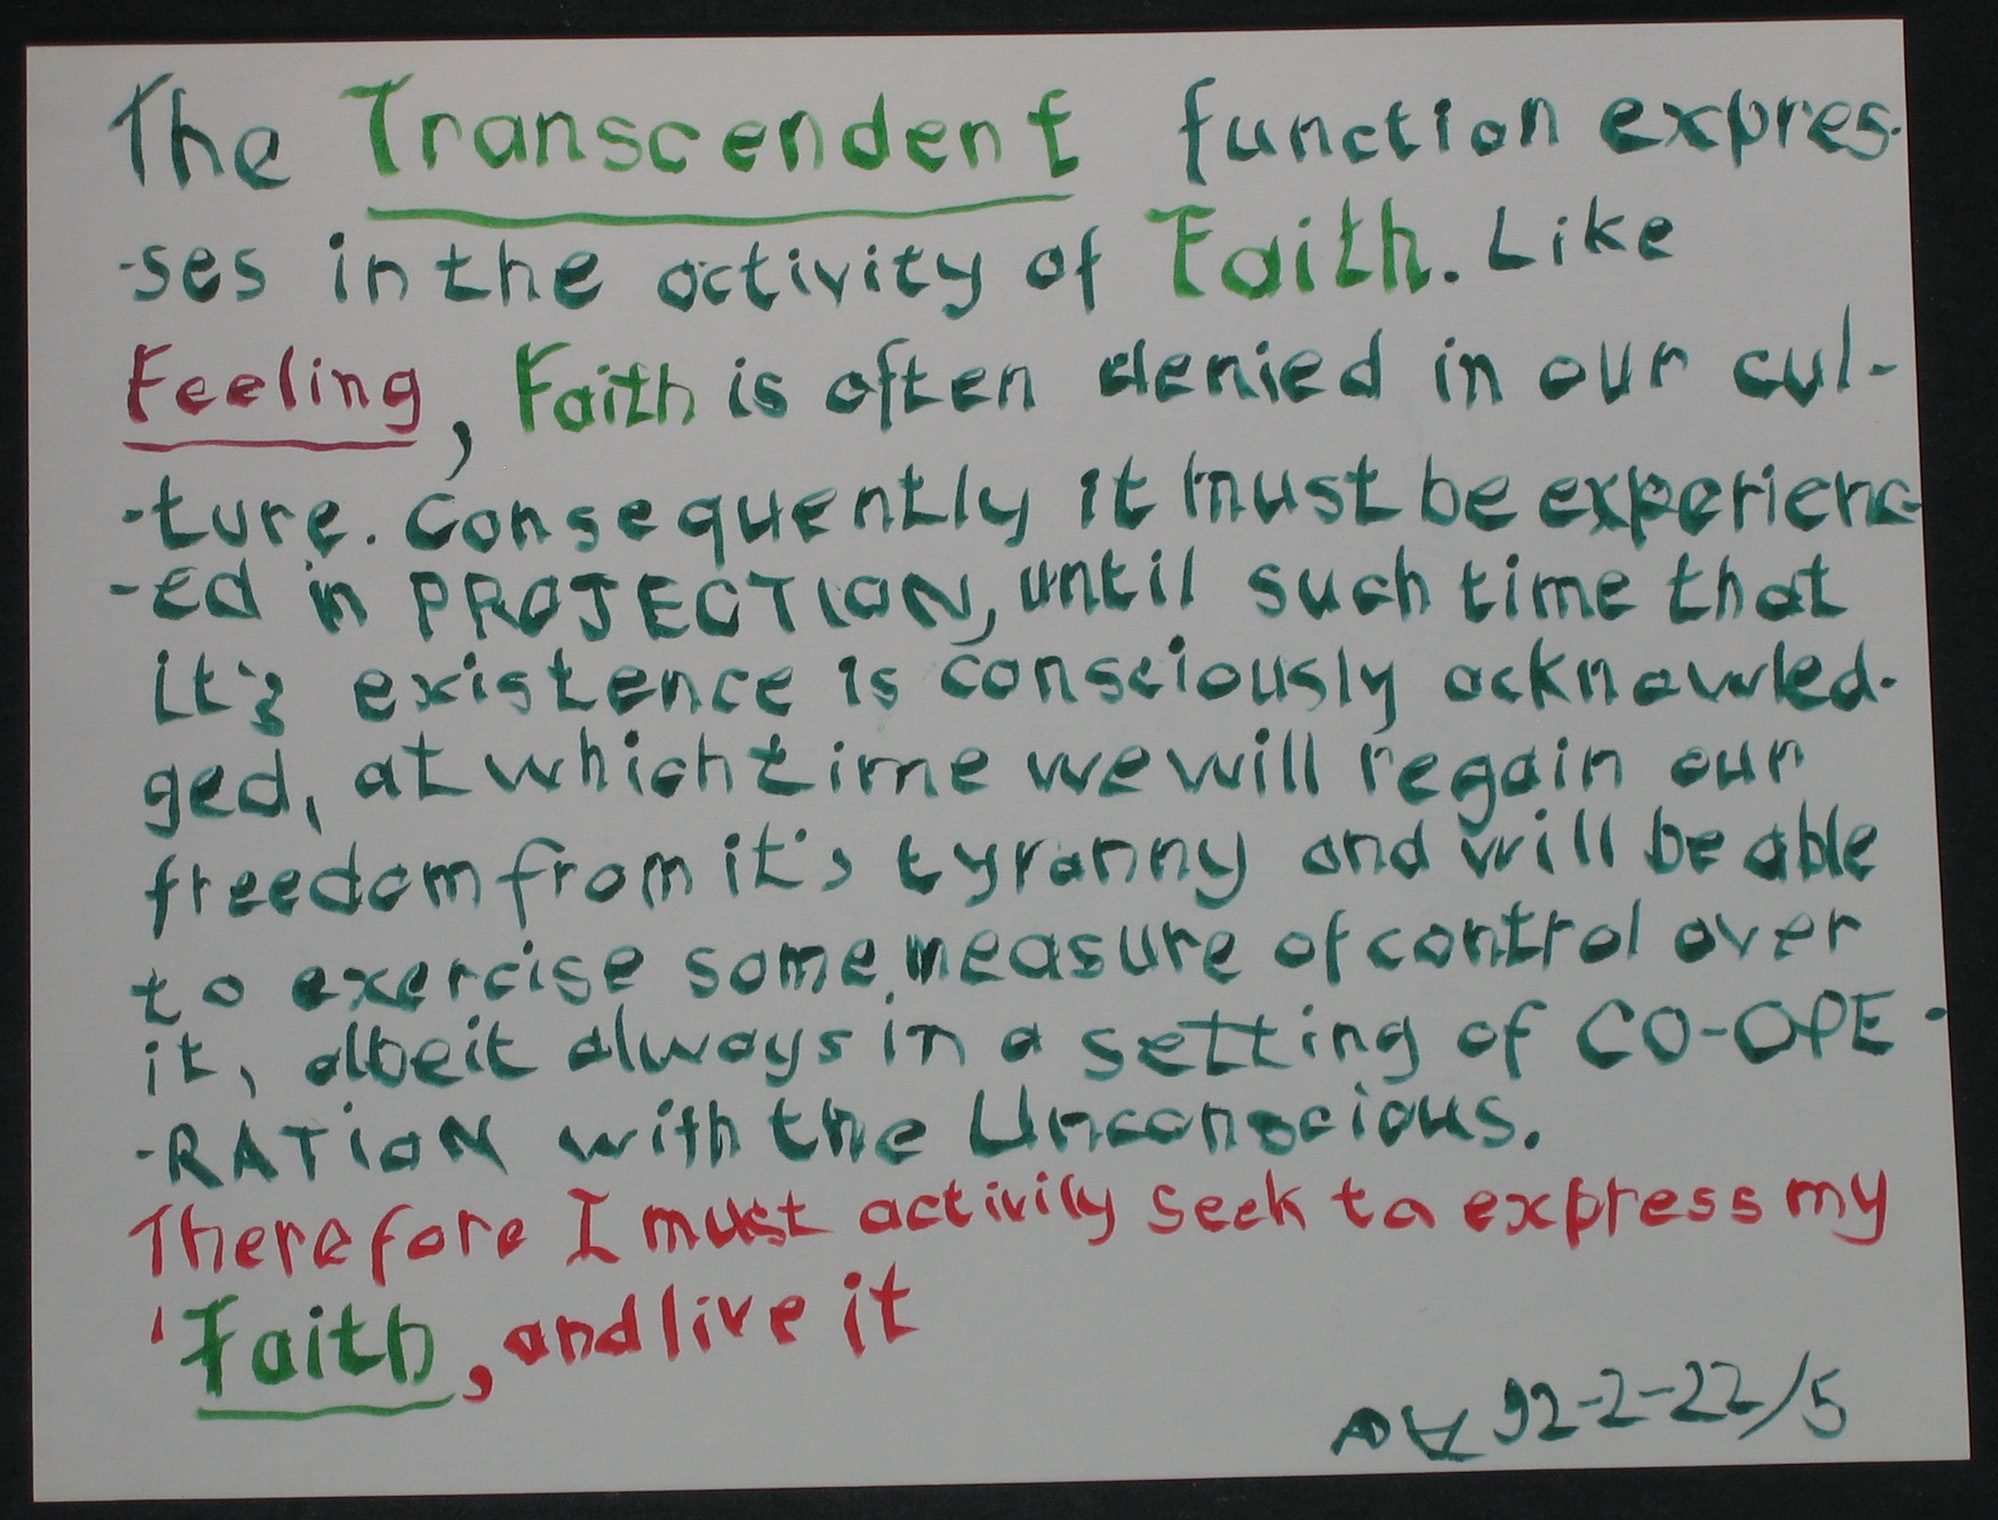 The Transcendent function expres-
-ses in the activity of Faith. Like
Feeling, Faith is often denied in our cul-
-ture. Consequently it must be experienc-
-ed in PROJECTION, until such time that
it's existence is consciously acknowled-
ged, at which time we will regain our
freedom from it's tyranny and will be able
to exercise some measure of control over
it, albeit always in a setting of CO-OPE-
-RATION with the Unconscious.
Therefore I must activily seek to express my
'Faith, and live it
92-2-22/5